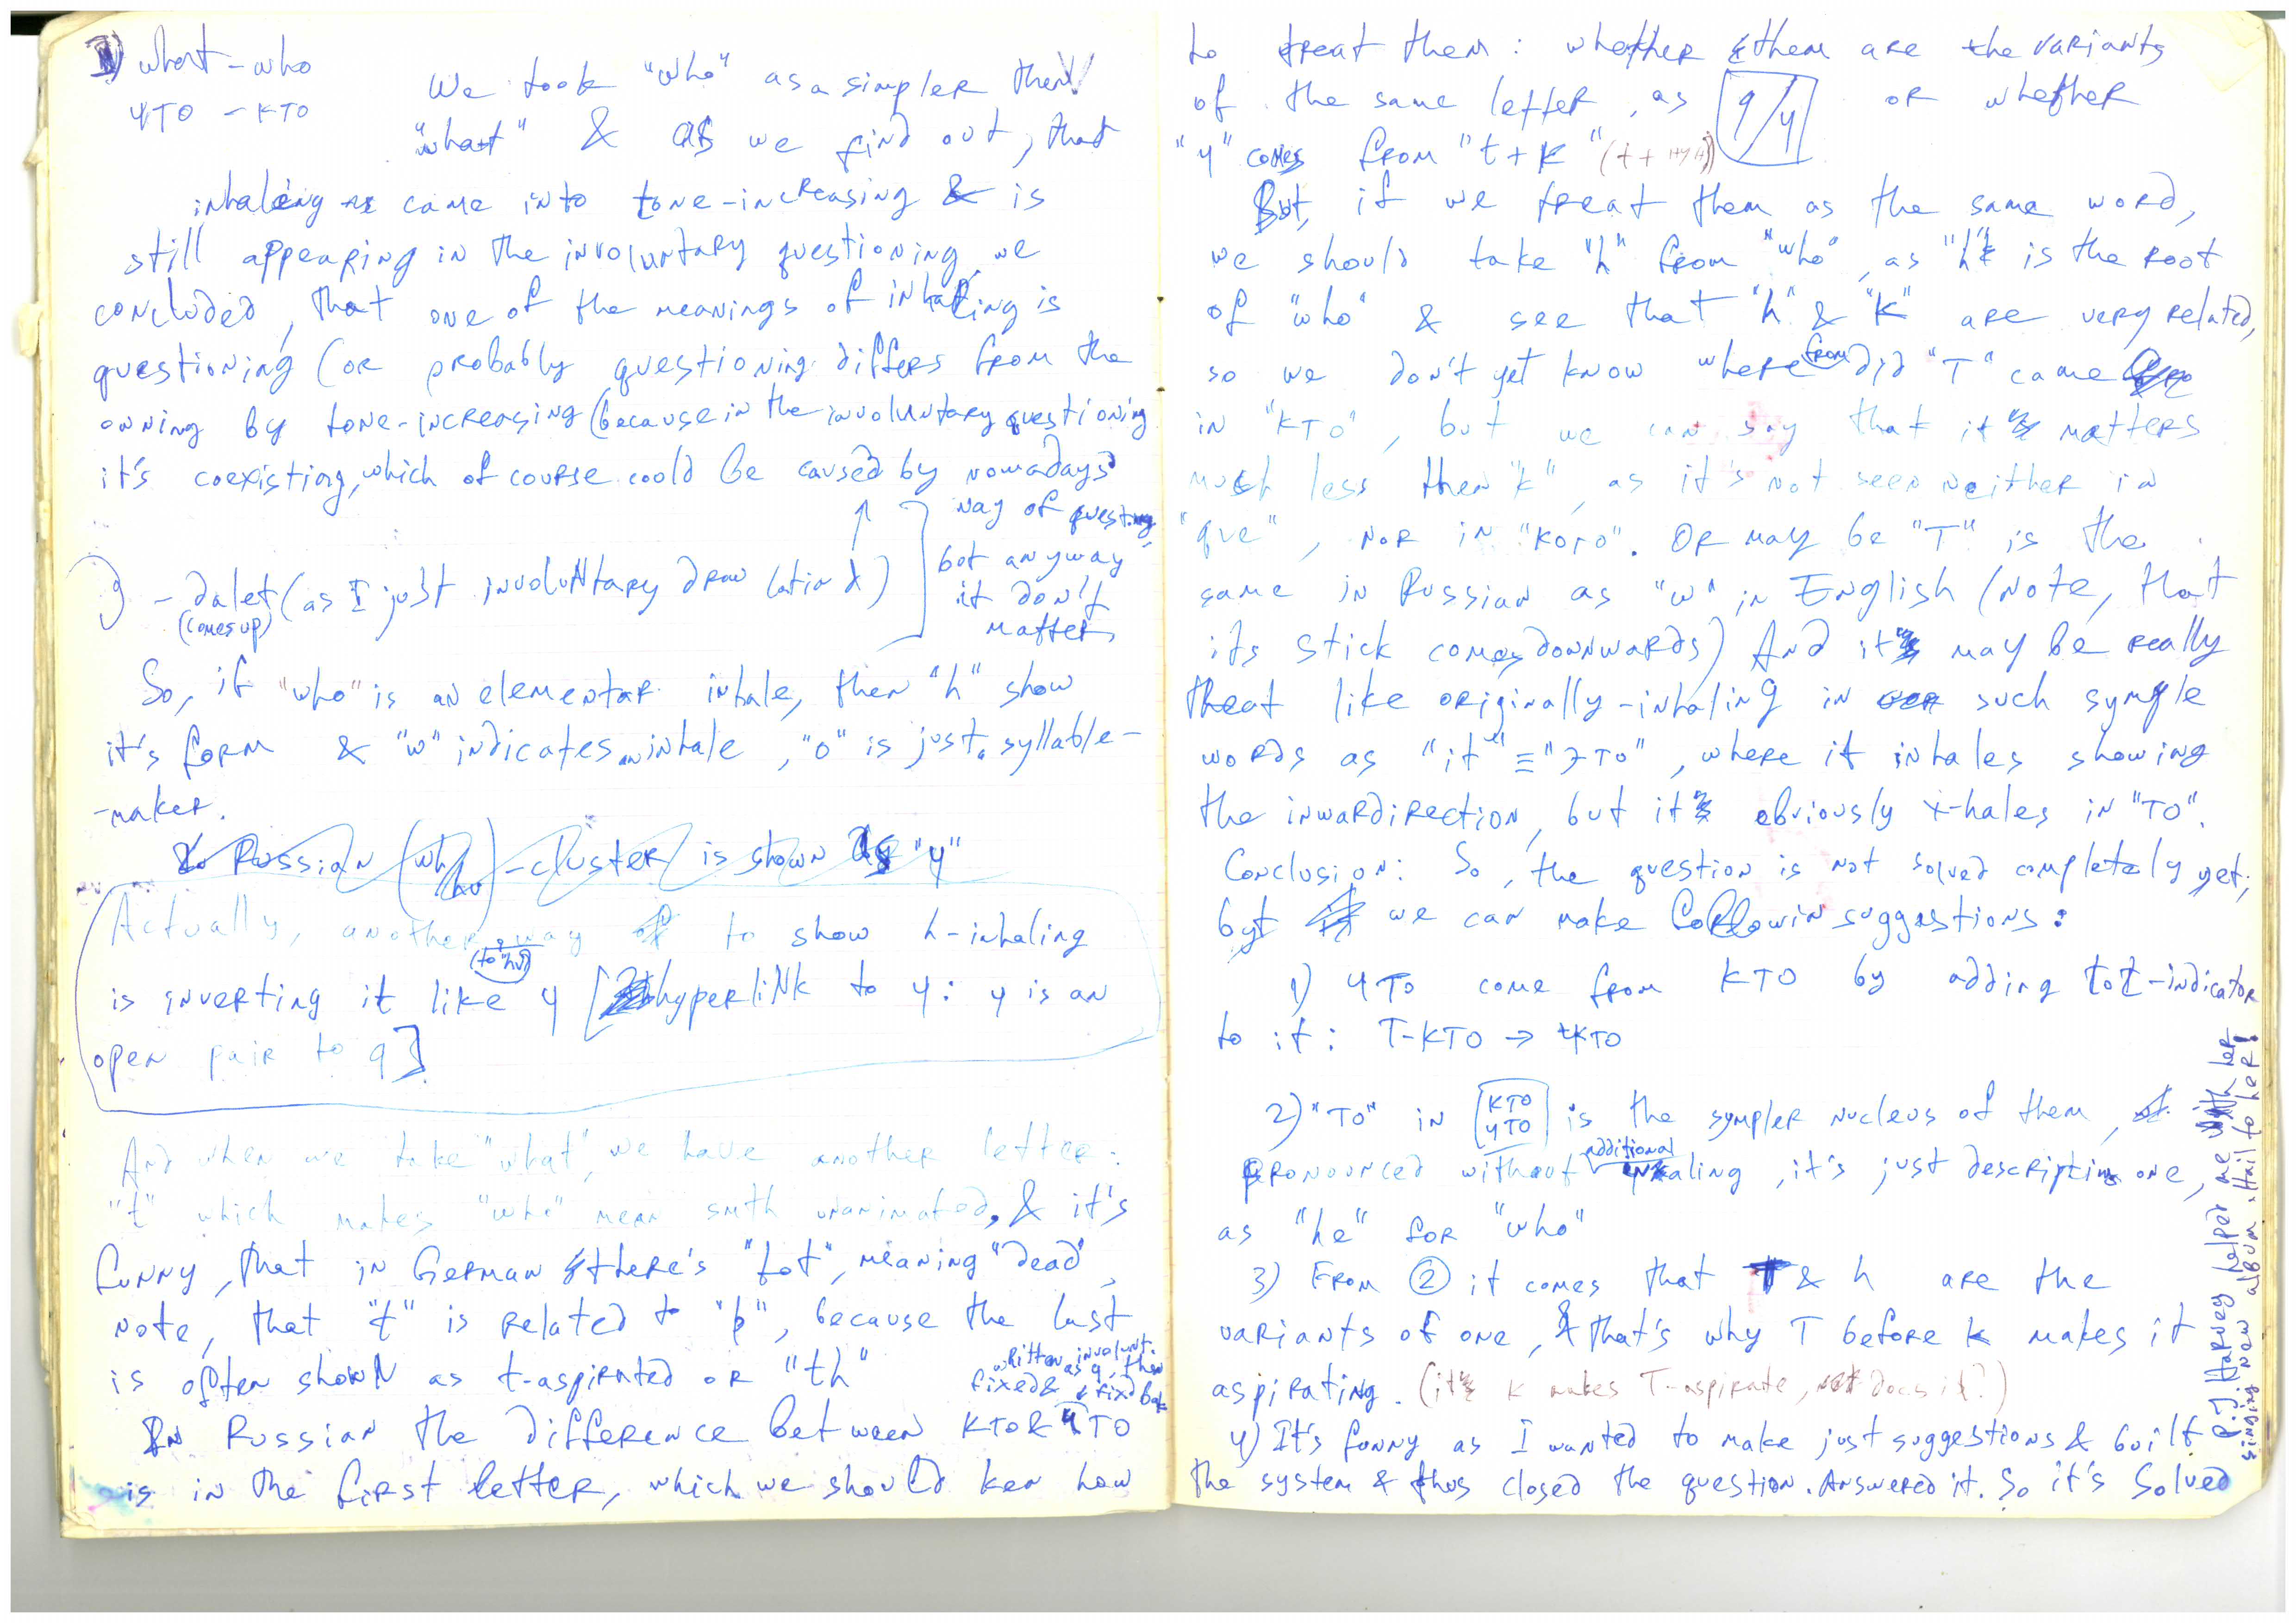 1) what – who
ЧТО – КТО
We took "who" as a simpler then
"what" & as we find out, that
inhaleing came into tone-increasing & is
still appearing in the involuntary questioning, we
concluded, that one of the meanings of inhaling is
questioning (or probably questioning differs from the
owning by tone-increasing (because in the involuntary questioning
it's coexisting, which of course could be caused by nowadays
way of questing,
but anyway
it don't
matter,
– dalet (as I just involuntary draw latin d)
(comes up)
So, if "who" is an elementar inhale, then "h" show
it's form & "w" indicates an inhale, "o" is just syllable-
-maker.
In Russian (wh hw) -cluster is shown as "ч"
Actually, another way to show h-inhaling
(to "hv")
is inverting it like ч [hyperlink to ч: ч is an
open pair to q]
And when we take "what", we have another letter:
"t" which makes "who" mean smth unanimated, & it's
funny, that in German there's "tot", meaning "dead",
note, that "t" is related to "þ", because the last
is often shown as t-aspirated or "th"
written involunt.
as q, then
fixed & fixed back
In Russian the difference between КТО & ЧТО
is in the first letter, which we should ken how
to treat them: whether them are the variants
of the same letter, as q/ч or whether
"ч" comes from "t+k"
But, if we treat them as the same word,
we should take "h" from "who", as "h" is the root
of "who" & see that "h" & "k" are very related,
so we don't yet know where from did "T" came
in "КТО", but we can say that it matters
much less then "k", as it's not seen neither in
"que", nor in "кого". Or may be "T" is the
same in Russian as "w" in English (note, that
its stick comes downwards) And it may be really
threat like originally-inhaling in such symple
words as "it" ≡ "ЭТО", where it inhales showing
the inwardirection, but it obviously x-hales in "ТО".
Conclusion: So, the question is not solved completely yet,
byt we can make followin suggestions:
1) ЧТО come from КТО by adding tot-indicator
to it: Т-КТО → чкто
2) "ТО" in [КТО ЧТО] is the sympler nucleus of them,
additional
pronounced without inhaling, it's just descripting one,
as "he" for "who"
3) From ② it comes that T & h are the
variants of one, & that's why T before k makes it
aspirating. (it k makes T-aspirate, not does it?)
4) It's funny as I wanted to make just suggestions & built
the system & thus closed the question. Answered it. So it's Solved
P.J. Harvey helped me with her
singing new album. Hail to her!